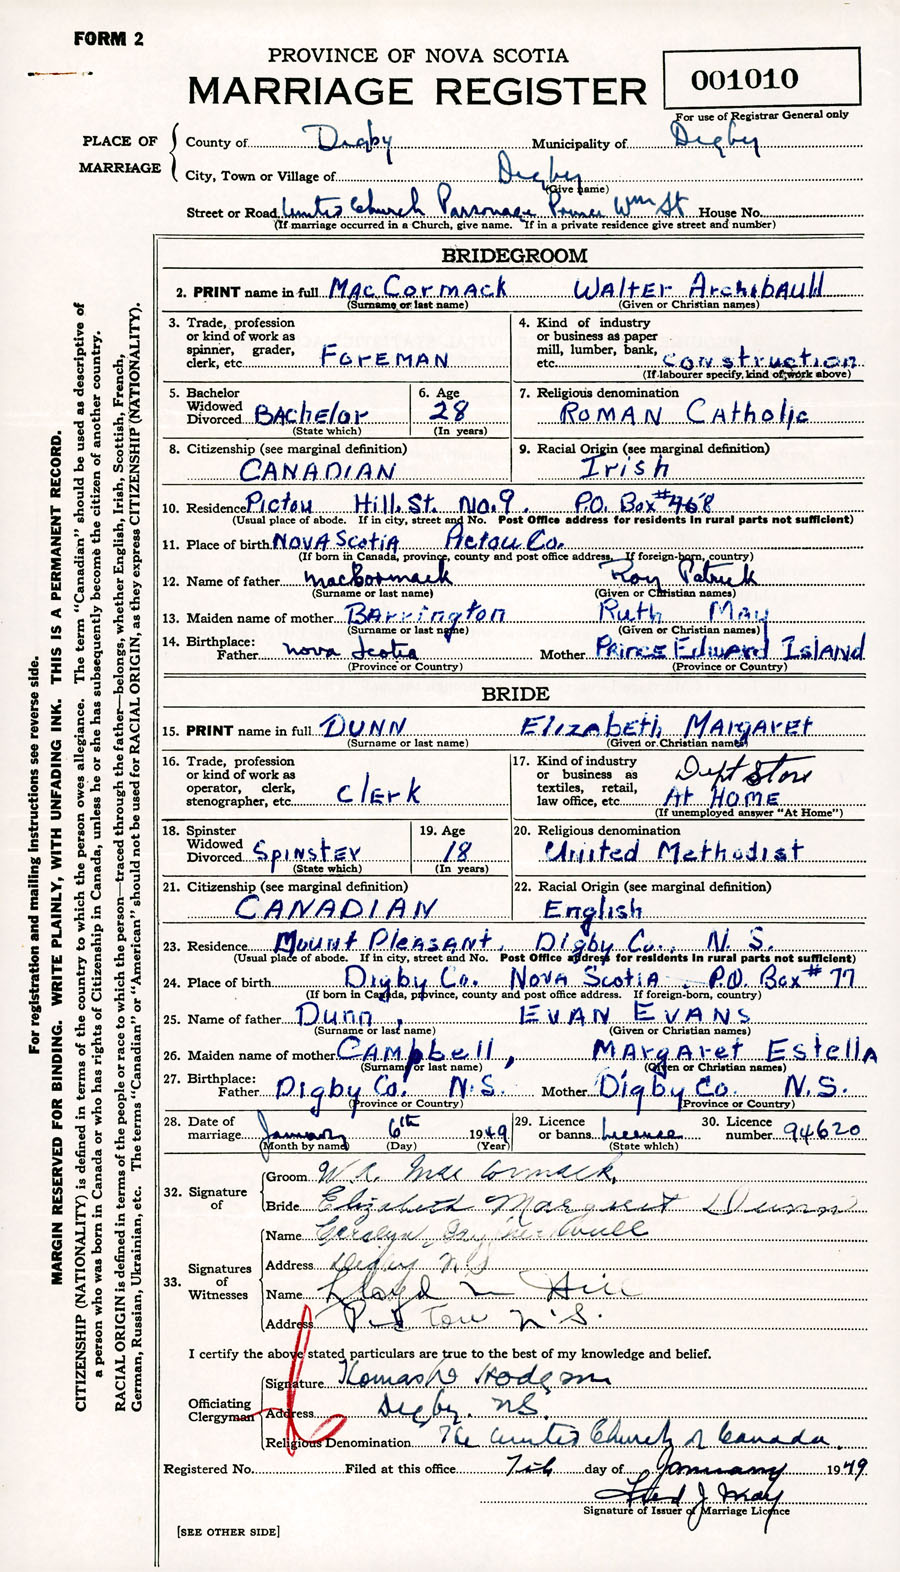 FORM 2
PROVINCE OF NOVA SCOTIA
MARRIAGE REGISTER
001010
For use of Registrar General only
PLACE OF MARRIAGE
County of Digby Municipality of Digby
City, Town or Village of Digby
(Give name)
Street or Road United Church Parsonage Prince Wm St House No.
(If marriage occurred in a Church, give name. If in a private residence give street and number)
BRIDEGROOM
2. PRINT name in full MacCormack Walter Archibauld
(Surname or last name) (Given or Christian names)
3. Trade, profession or kind of work as spinner, grader, clerk, etc. Foreman
4. Kind of industry or business as paper mill, lumber, bank, etc. construction
(If labourer specify, kind of work above)
5. Bachelor Widowed Divorced Bachelor
(State which)
6. Age 28
(In years)
7. Religious denomination Roman Catholic
8. Citizenship (see marginal definition) CANADIAN
9. Racial Origin (see marginal definition) Irish
10. Residence Pictou Hill. St. No. 9. P.O. Box #468
(Usual place of abode. If in city, street and No. Post Office address for residents in rural parts not sufficient)
11. Place of birth Nova Scotia Pictou Co.
(If born in Canada, province, county and post office address. If foreign-born, country)
12. Name of father MacCormack Roy Patrick
(Surname or last name) (Given or Christian names)
13. Maiden name of mother Barrington Ruth May
(Surname or last name) (Given or Christian names)
14. Birthplace: Father Nova Scotia Mother Prince Edward Island
(Province or Country) (Province or Country)
BRIDE
15. PRINT name in full DUNN Elizabeth Margaret
(Surname or last name) (Given or Christian names)
16. Trade, profession or kind of work as operator, clerk, stenographer, etc. Clerk
17. Kind of industry or business as textiles, retail, law office, etc. Dept Store At Home
(If unemployed answer "At Home")
18. Spinster Widowed Divorced Spinster
(State which)
19. Age 18
(In years)
20. Religious denomination United Methodist
21. Citizenship (see marginal definition) CANADIAN
22. Racial Origin (see marginal definition) English
23. Residence Mount Pleasant, Digby Co., N. S.
(Usual place of abode. If in city, street and No. Post Office address for residents in rural parts not sufficient)
24. Place of birth Digby Co. Nova Scotia P.O. Box #77
(If born in Canada, province, county and post office address. If foreign-born, country)
25. Name of father Dunn, EVAN EVANS
(Surname or last name) (Given or Christian names)
26. Maiden name of mother Campbell, Margaret Estella
(Surname or last name) (Given or Christian names)
27. Birthplace: Father Digby Co. N.S. Mother Digby Co. N.S.
(Province or Country) (Province or Country)
28. Date of marriage January 6th 1949
(Month by name) (Day) (Year)
29. Licence or banns Licence
(State which)
30. Licence number 94620
32. Signature of
Groom W. A. MacCormack
Bride Elizabeth Margaret Dunn
33. Signatures of Witnesses
Name
Address Digby N.S
Name Lloyd Hill
Address Pictou N.S.
I certify the above stated particulars are true to the best of my knowledge and belief.
Officiating Clergyman
Signature Hodgson
Address Digby. NS.
Religious Denomination The United Church of Canada.
Registered No. Filed at this office 7th day of January 1949
Fred J. May
Signature of Issuer of Marriage Licence
[SEE OTHER SIDE]
For registration and mailing instructions see reverse side.
MARGIN RESERVED FOR BINDING. WRITE PLAINLY, WITH UNFADING INK. THIS IS A PERMANENT RECORD.
CITIZENSHIP (NATIONALITY) is defined in terms of the country to which the person owes allegiance. The term "Canadian" should be used as descriptive of
a person who was born in Canada or who has rights of Citizenship in Canada, unless he or she has subsequently become the citizen of another country.
RACIAL ORIGIN is defined in terms of the people or race to which the person—traced through the father—belongs, whether English, Irish, Scottish, French,
German, Russian, Ukrainian, etc. The terms "Canadian" or "American" should not be used for RACIAL ORIGIN, as they express CITIZENSHIP (NATIONALITY).